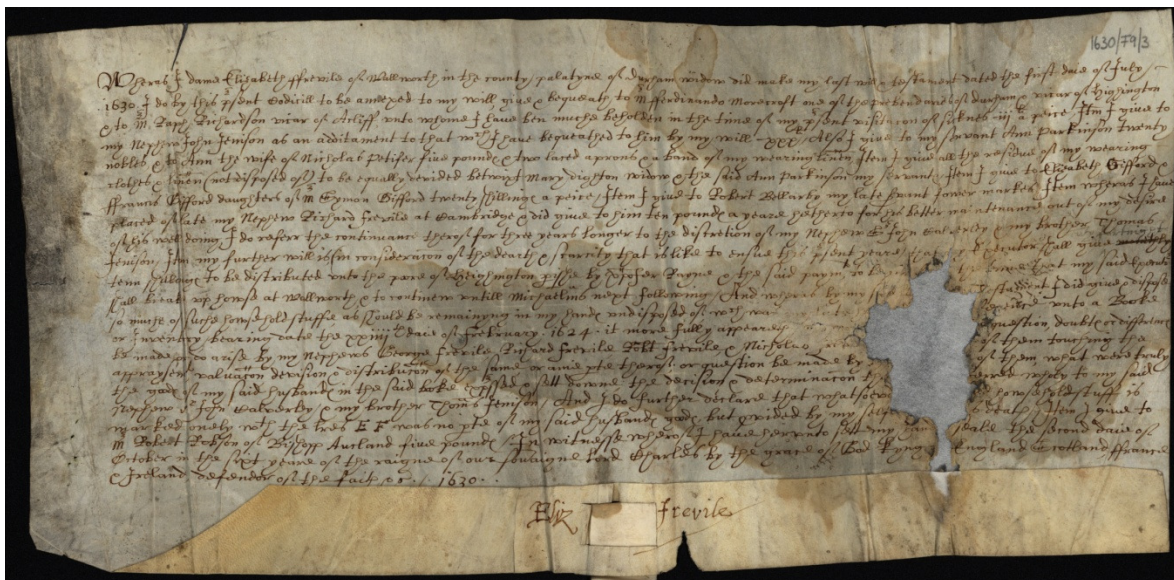 1630/79/3
Wheras I dame Elizabeth ffrevile of Wallworth in the county palatyne of Durham widow did make my last will & testament dated the first daie of July
1630. I do by this psent Codicill to be anexed to my will give & bequeath to Mr fferdinando Morecroft one of the prebendaries of durham & vicar of Heighington
& to Mr Raph Richardson vicar of Acliff, unto whome I have ben much beholden in the time of my psent visitacon of siknes iij a peice Itm I give to
my Nephew John Jenison as an additament to that wch I have bequeathed to him by my will xxx Also I give to my servant Ann Parkinson twenty
nobles & to Ann the wife of Nicholas Petifer five pound & two laced aprons & a band of my wearing linen Item I give all the residue of my wearing
clothes & linen (not disposed of) to be equally devided betwixt Mary dighton widow & the said Ann Parkinson my servant Item I give to Elizabeth Gifford &
ffrancis Gifford daughters of Mr Symon Gifford twenty shillings a peice Item I give to Robert Bellarby my late srvant fower markes Item wheras I have
placed of late my Nephew Richard frevile at Cambridge & did give to him ten pound a yeare hetherto for his better maintenance out of my desire
of his well doing, I do referr the continuance therof for thre years longer to the discretion of my Nephew Sr John Calverley & my brother Thomas
Jenison, Itm my further will is (in consideracon of the dearth & scarcity that is like to ensue this psent yeare) Executor shall give
tenn shillings to be distributed unto the pore of Heighington pishe by xpofer Rayne & the said paym to that my said Executor
shall break up house at Wallworth & to continew untill Michaelms next following. And wheras by my I did give & dispose
so much of suche howsehold stuffe as should be remayning in my hands undisposed of wch was unto a Booke
or Inventory bearing date the xxiiijth daie of ffebruary. 1624. it more fully appeareth question, doubt or difference
be made or do arise by my Nephews George frevile, Richard frevile Robt frevile & Nicholas frevile of them touching the
apprayset valuacon devision & distribution of the same or anie pte therof, or question be made by of them what were truly
the goods of my said husband in the said booke expssed & sett downe the decision & determinacon to my said
Nephew Sr John Calverley & my brother Thoms Jenison. And I do further declare that whatsoever howsehold stuff is
marked onely wth the lres E F was no pte of my said husbands goods but pvided by my selfe death Item I give to
Mr Robert Robson of Bishopp Awcland five pounds In witnesse wherof I have herunto sett my hand seale the second daie of
October in the sixt yeare of the raigne of our sovaigne lord Charles by the grace of God Kyng England Scotland, ffrance
& Ireland defender of the faith &c. / 1630.
Eliz frevile